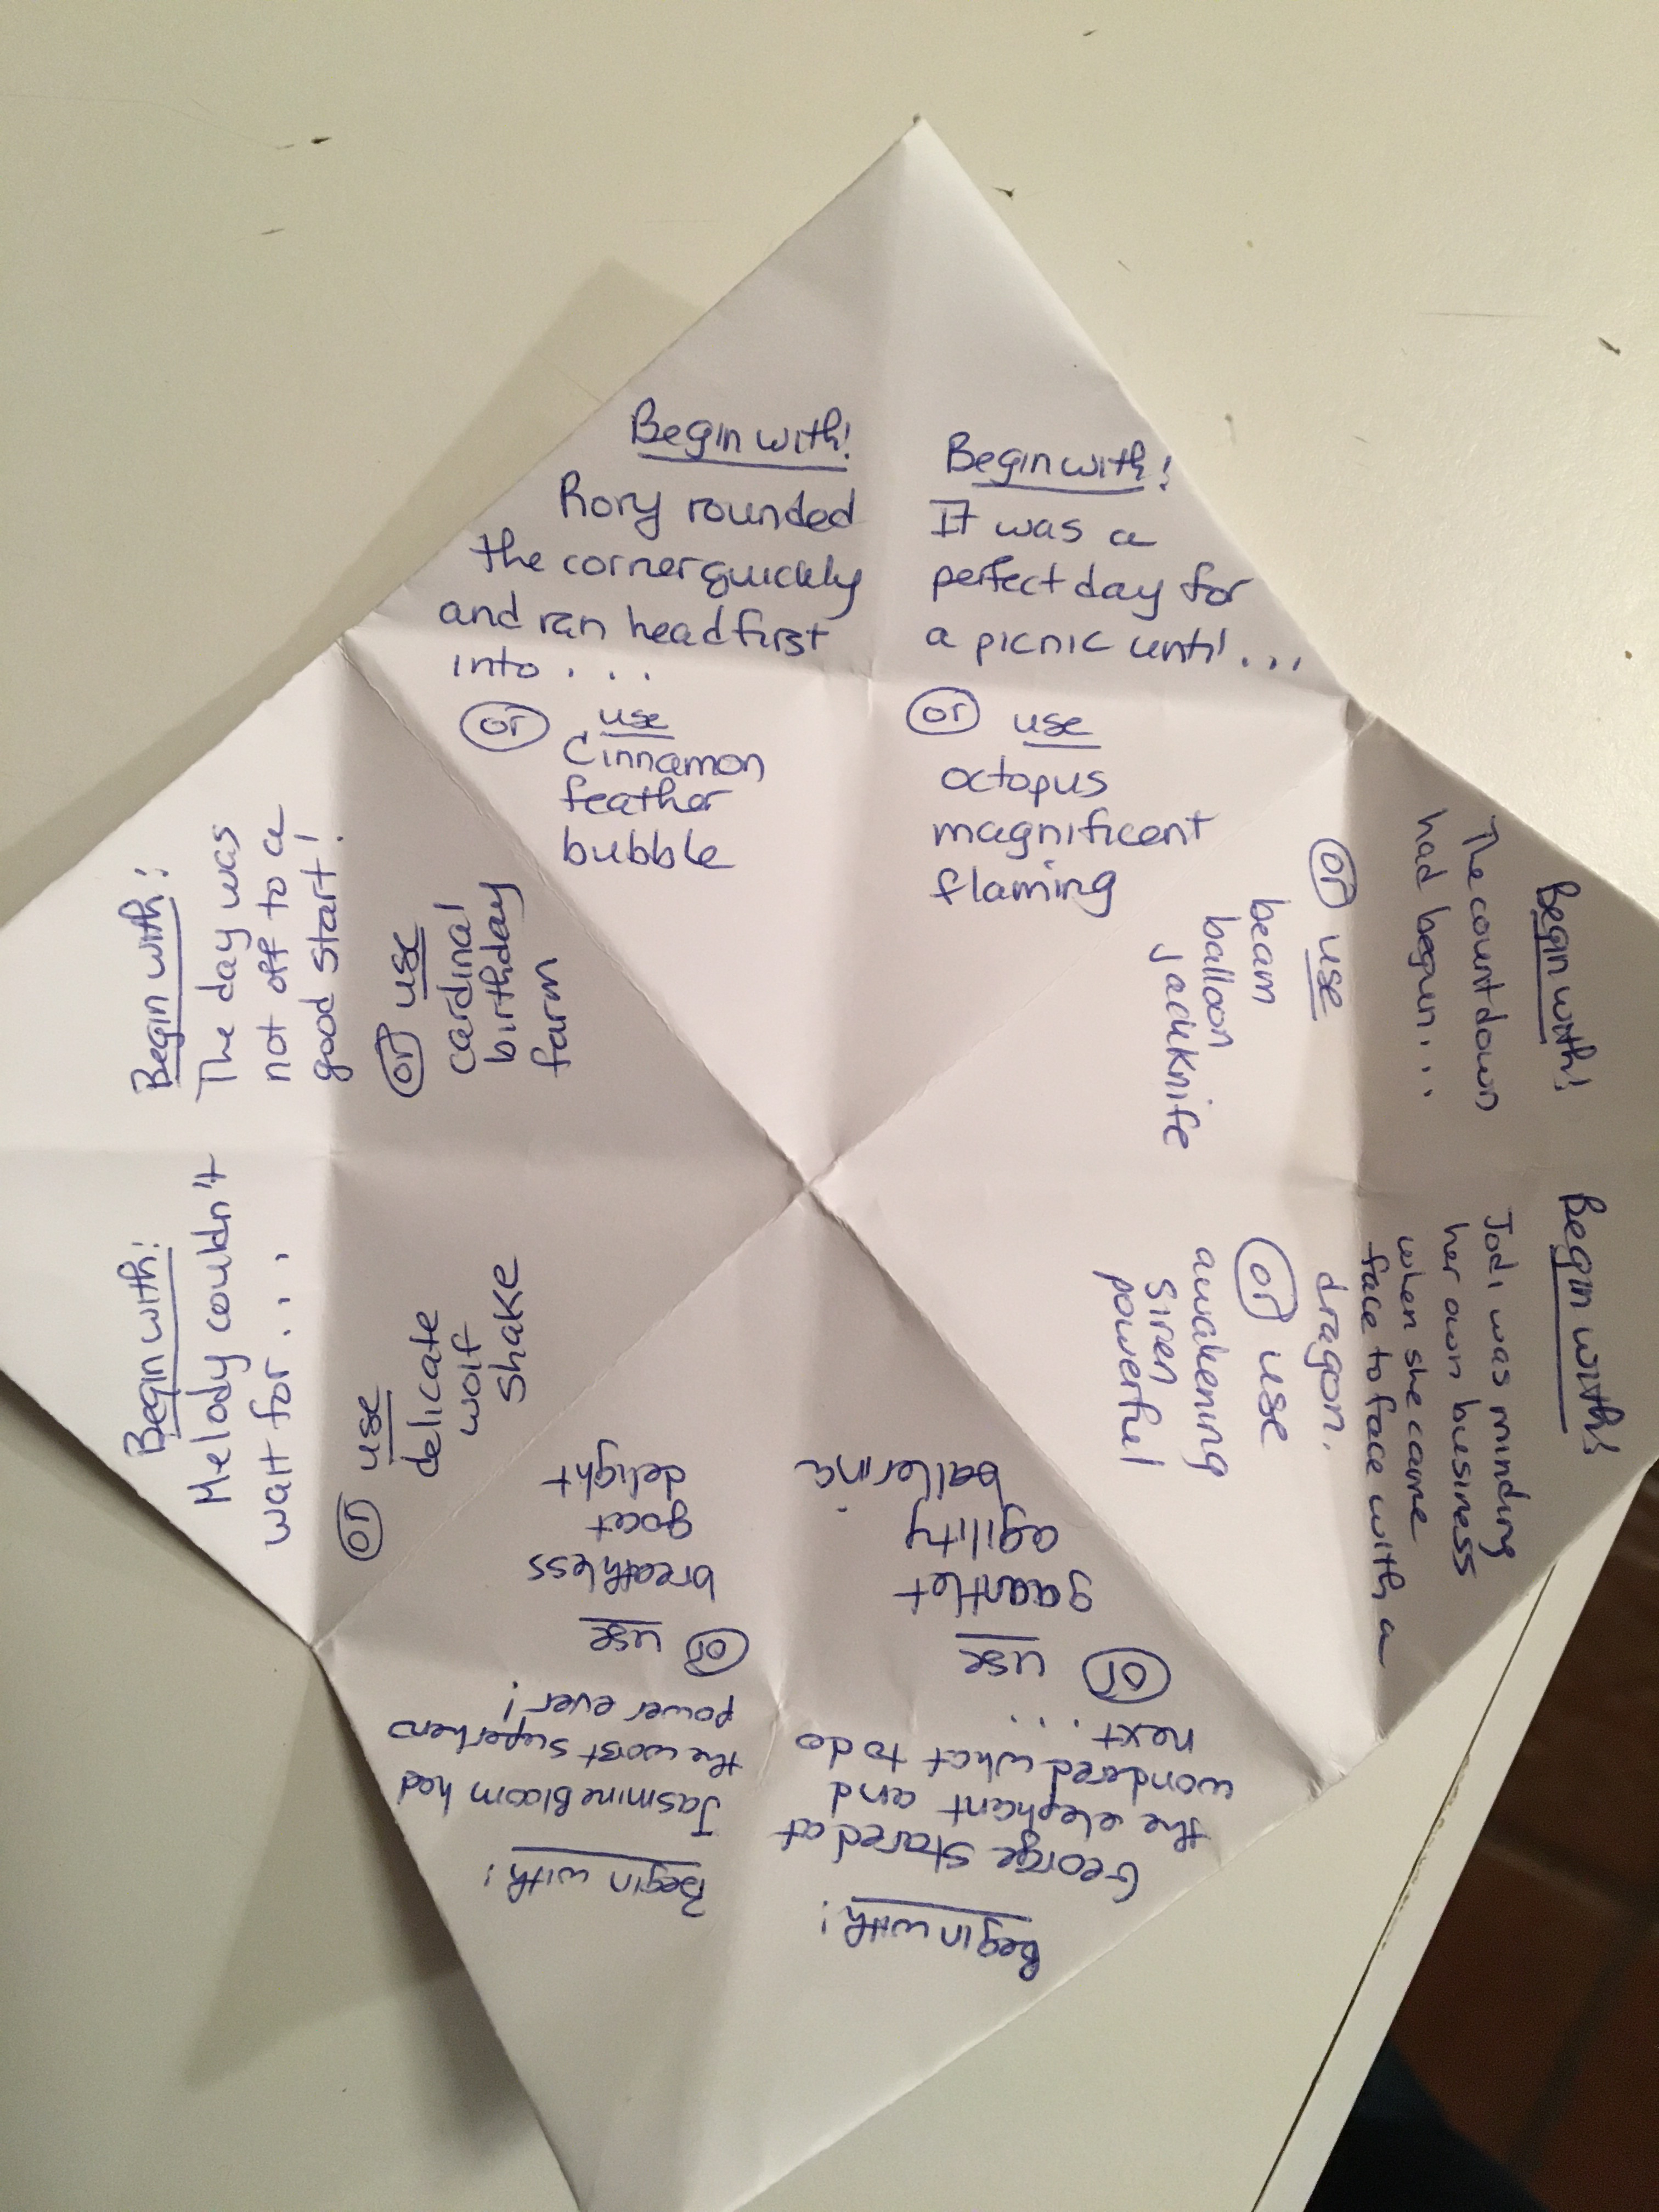 Begin with!
Rory rounded
the corner quickly
and ran headfirst
into . . .
or use
Cinnamon
feather
bubble
Begin with!
It was a
perfect day for
a picnic until . . .
or use
octopus
magnificent
flaming
Begin with!
The countdown
had begun . . .
or use
beam
balloon
jackknife
Begin with!
Jodi was minding
her own business
when she came
face to face with a
dragon.
or use
awakening
siren
powerful
Begin with!
George stared at
the elephant and
wondered what to do
next . . .
or use
gauntlet
agility
ballerina
Begin with!
Jasmine Bloom had
the worst superhero
power ever!
or use
breathless
goat
delight
Begin with!
Melody couldn't
wait for . . .
or use
delicate
wolf
shake
Begin with!
The day was
not off to a
good start!
or use
cardinal
birthday
farm